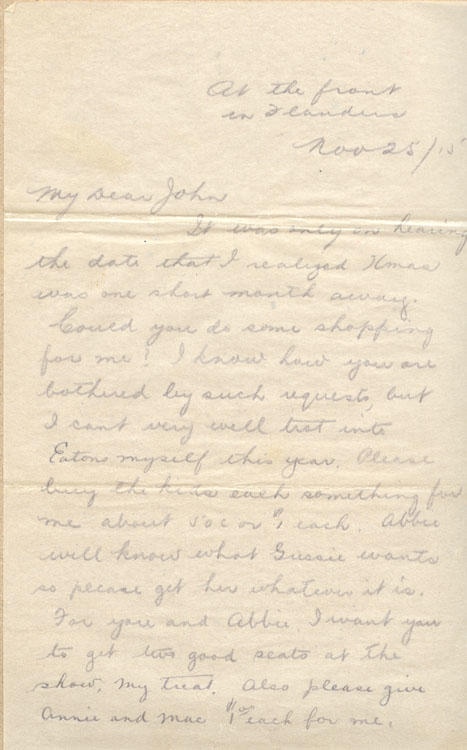 At the front
in Flanders
Nov 25/15
My Dear John
It was only on hearing
the date that I realized Xmas
was one short month away.
Could you do some shopping
for me? I know how you are
bothered by such requests, but
I cant very well trot into
Eatons myself this year. Please
buy the kids each something for
me about 50c or $1 each. Abbie
will know what Gussie wants
so please get her whatever it is.
For you and Abbie, I want you
to get two good seats at the
show, my treat. Also please give
Annie and Mac $1⁰⁰ each for me.